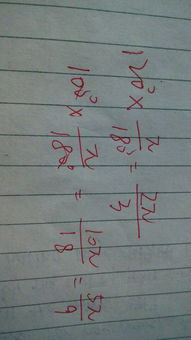 120° × π/180 = 2π/3
100° × π/180 = 10π/18 = 5π/9